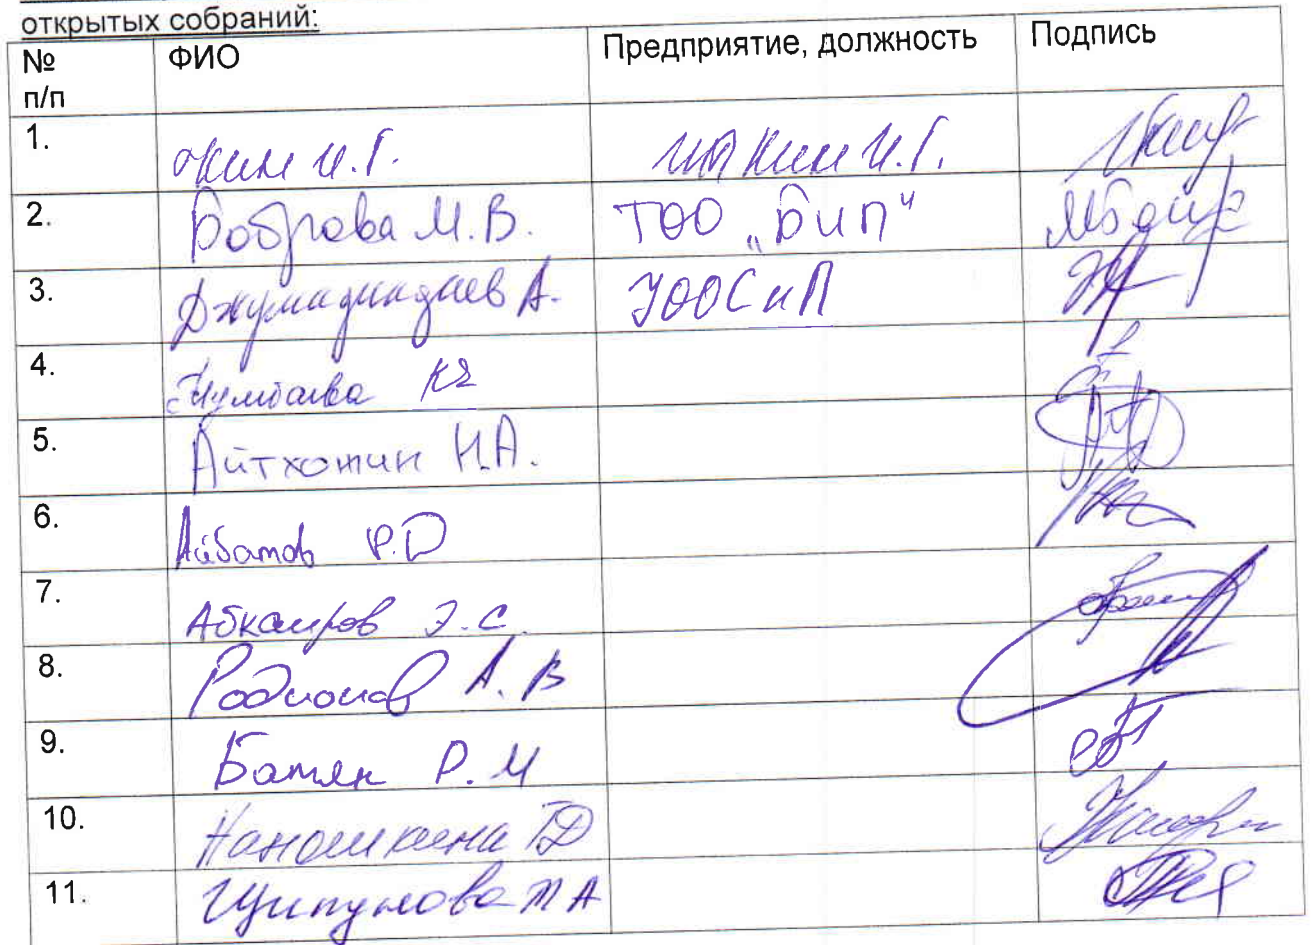 открытых собраний:
№ п/п ФИО Предприятие, должность Подпись
1. Ким И.Г. ИП Ким И.Г.
2. Боброва М.В. ТОО „БиП"
3. Джумадилдаев А. УООС и П
4.
5. Айтхожин Н.А.
6. Айбатов Р.Д
7. Абкаиров Э.С.
8. Родионов А.В
9. Батян Р.М
10. Наношкина ТД
11. Щипунова ТА